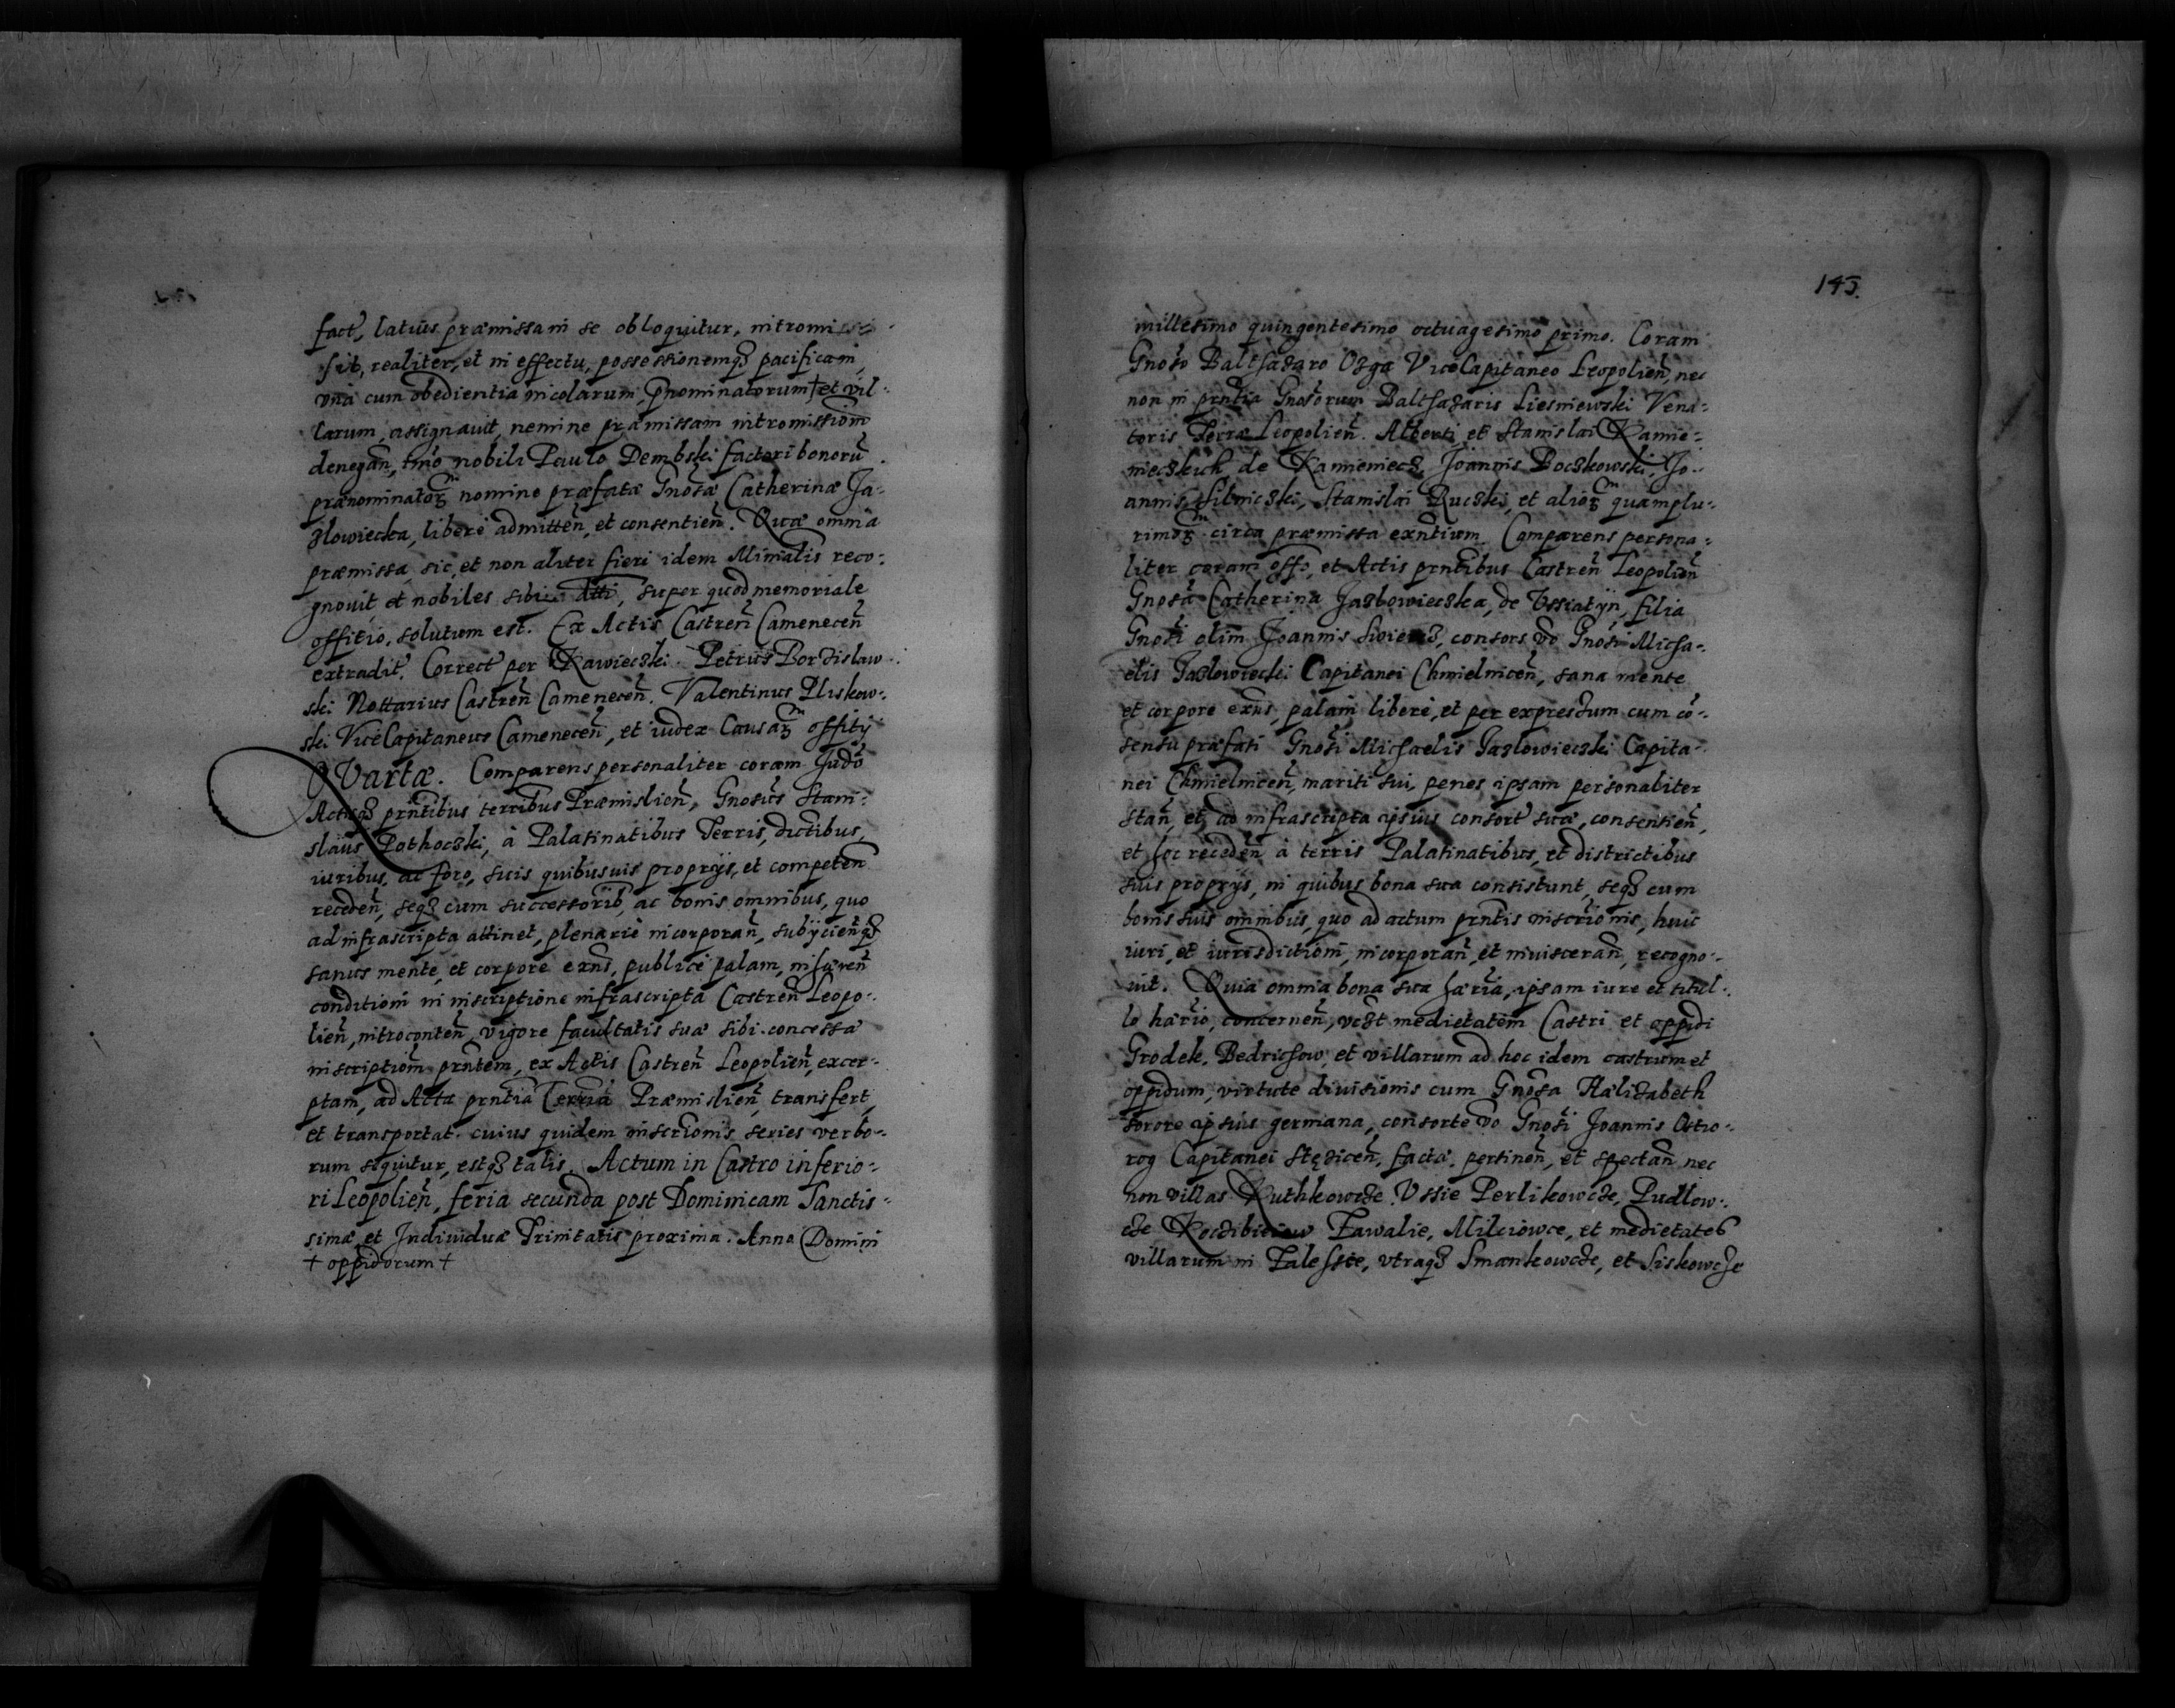 fact, latius præmissam se obloquitur, intromis
sit, realiter, et in effectu, possessionemqȝ pacificam,
vna cum obedientia incolarum, prnominatorum † et vil-
larum, assignavit, nemine præmissam intromissiom
denegan̄, imo nobili Paulo Dembski factori bonorū
prænominatorȝ nomine præfatæ Gnosæ Catherinæ Ja-
zlowiecka, liberè admitten̄, et consentien̄. Quæ omnia
præmissa, sic, et non aliter fieri idem Minialis reco-
gnovit, et nobiles sibi dtti, super quod memoriale
offitio, solutum est. Ex Actis Castren̄ Camenecen̄
extradit. Correct per Rawieczki. Petrus Borzislaw-
ski Nottarius Castren̄ Camenecen̄. Valentinus Pliskow-
ski ViceCapitaneus Camenecen̄, et iudex Causarȝ offitij
Quartæ. Comparens personaliter coram Judō
Actisqȝ prntibus terribus Præmislien̄, Gnosus Stani-
slaus Pothoczki, à Palatinatibus Terris, dictibus,
iuribus, ac foro, suis quibusuis proprijs, et competen̄
receden̄, seqȝ cum successorib, ac bonis omnibus, quo
ad infrascripta attinet, plenariè incorporan̄, subijcien̄qȝ
sanus mente, et corpore exns, publicè palam, inhæren̄
conditiom in inscriptione infrascripta Castren̄ Leopo-
lien̄, introconten̄, vigore facultatis suæ sibi concessæ
inscriptiom prntem, ex Actis Castren̄ Leopolien̄, excer-
ptam, ad Acta prntia Terria Præmislien̄, transfert,
et transportat. cuius quidem inscrionis series verbo-
rum sequitur, estqȝ talis. Actum in Castro inferio-
ri Leopolien̄, feria secunda post Dominicam Sanctis-
simæ et Individuæ Trinitatis proxima. Anno Domini
† oppidorum †
145.
millesimo quingentesimo octuagesimo primo. Coram
Gnoso Balthazaro Ozga ViceCapitaneo Leopolien̄, nec
non in prntia Gnosorum Balthazaris Liesniewski Vena-
toris Terræ Leopolien̄. Alberti, et Stanislai Kamie-
nieczkich de Kamieniecz, Joannis Boczkowski, Jo-
annis Silniczki, Stanislai Ruczki, et aliorȝ quamplu-
rimorȝ circa præmissa exntium. Comparens persona-
liter coram offo, et Actis prntibus Castren̄ Leopolien̄
Gnosa Catherina Jazlowieczka, de Vssiatijn, filia
Gnosi olim Joannis Swiercz, consors vo Gnosi Micha-
elis Jazlowiecki Capitanei Chmielnicen̄, sana mente
et corpore exns, palam liberè, et per expressum cum cō-
sensu præfati Gnosi Michaelis Jazlowieczki Capita-
nei Chmielnicen̄, mariti sui, penes ipsam personaliter
stan̄, et ad infrascripta ipsius consort suæ, consentien̄,
et hoc receden̄ à terris Palatinatibus, et districtibus
suis proprijs, in quibus bona sua consistunt, seqȝ cum
bonis suis omnibus, quo ad actum prntis inscrionis, huic
iuri, et iurisdictiom, incorporan̄, et inuisceran̄, recogno-
uit. Quia omnia bona sua hæria, ipsam iure et titul-
lo hærio, concernen̄, vczt medietatem Castri et oppidi
Grodek, Bedrichow, et villarum ad hoc idem castrum et
oppidum, virtute diuisionis cum Gnosa Hælizabeth
sorore ipsius germana, consorte vo Gnosi Joannis Ostro-
rog Capitanei Stęzicen̄, factæ, pertinen̄, et spectan̄ nec
non villas Ruthkowcze Vssie Perlikowcze, Pudlow-
cze Zawalie, Milciowce, et medietates
villarum in Zalesste, vtraqȝ Smankowcze, et Siskowcze